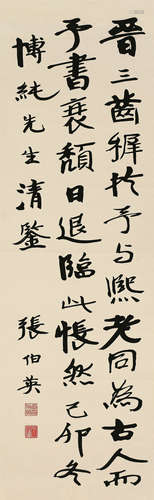 晉三齒稺於予与熙老同為古人而
予書衰頽日退臨此悵然己卯冬
博純先生清鑒
張伯英